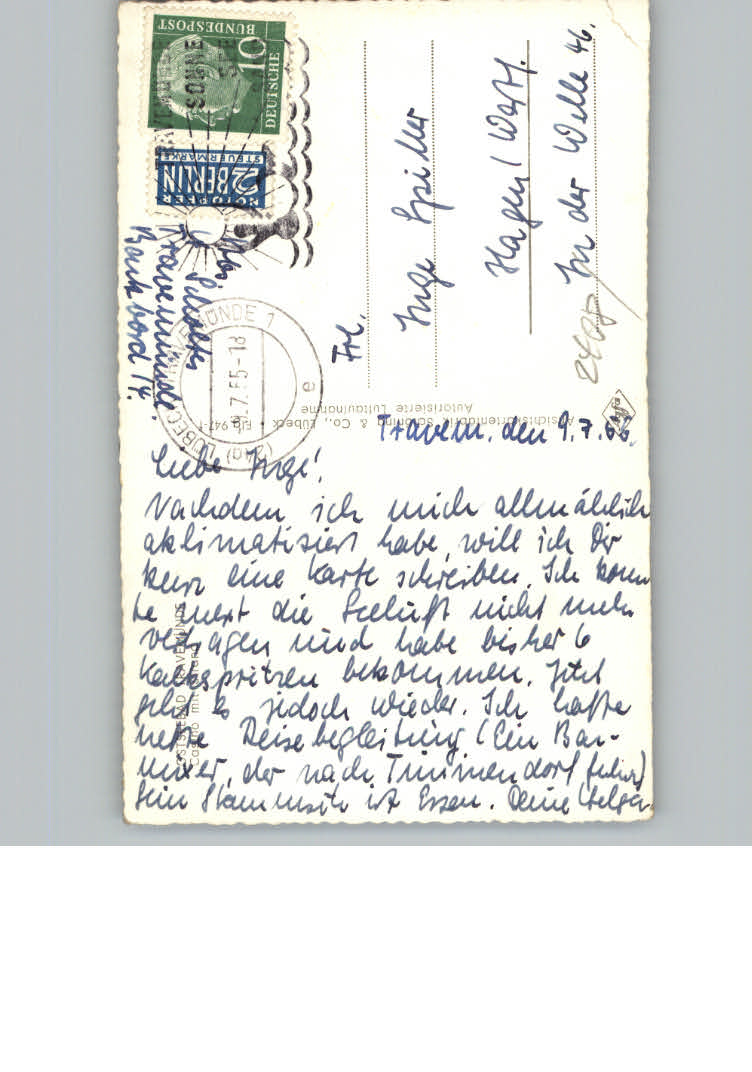 Travem. den 9.7.55.
Liebe Inge!
Nachdem ich mich allmählich
aklimatisiert habe, will ich Dir
kurz eine Karte schreiben. Ich konn
te zuerst die Seeluft nicht mehr
vertragen und habe bisher 6
Kalkspritzen bekommen. Jetzt
geht es jedoch wieder. Ich hatte
nette Reisebegleitung (Ein Bar-
mixer, der nach Timmendorf fuhr)
Sein Stammsitz ist Essen. Deine Helga.
Frl.
Inge Spiller
Hagen / Westf.
In der Welle 46.
Travemünde
DEUTSCHE
BUNDESPOST
10
NOTOPFER
2 BERLIN
STEUERMARKE
SONNE
(24a) LÜBECK-TRAVEMÜNDE 1
9.7.55-18
e
Ansichtskartenfabrik Schöning & Co., Lübeck • Flg 947-1
Autorisierte Luftaufnahme
OSTSEEBAD TRAVEMÜNDE
Casino mit Strand